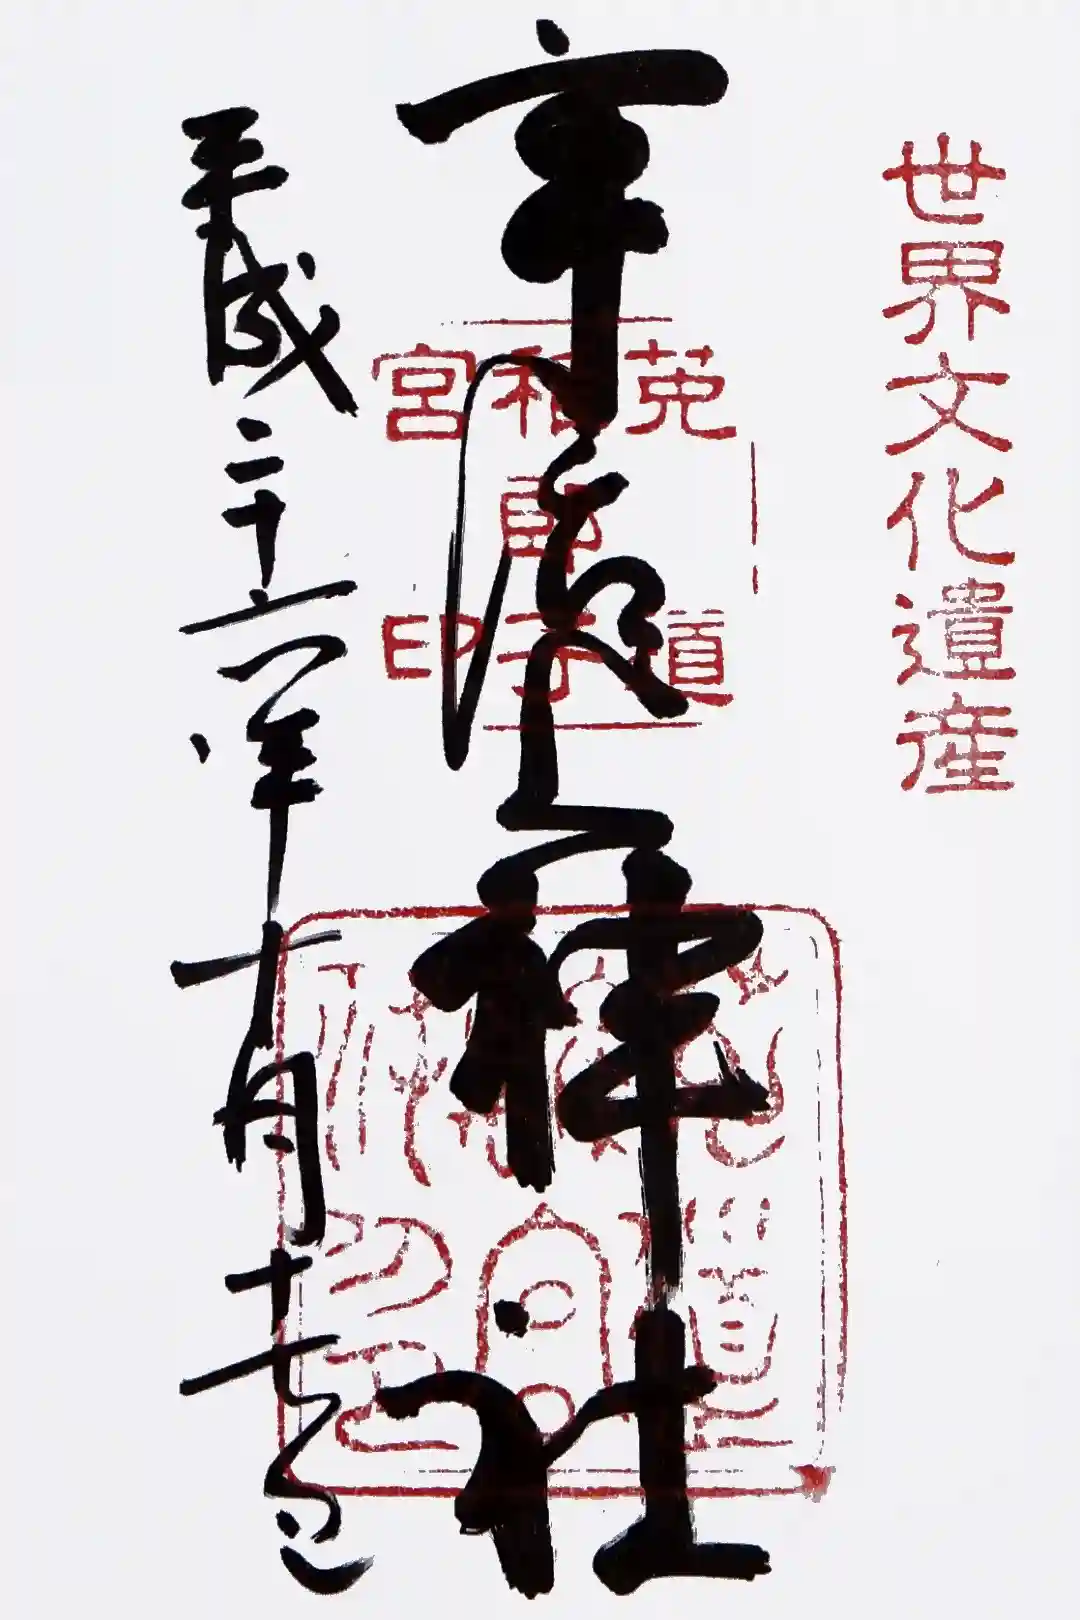 世界文化遺産
菟道
稚郎子
宮印
宇治上神社
平成二十六年十月十七日